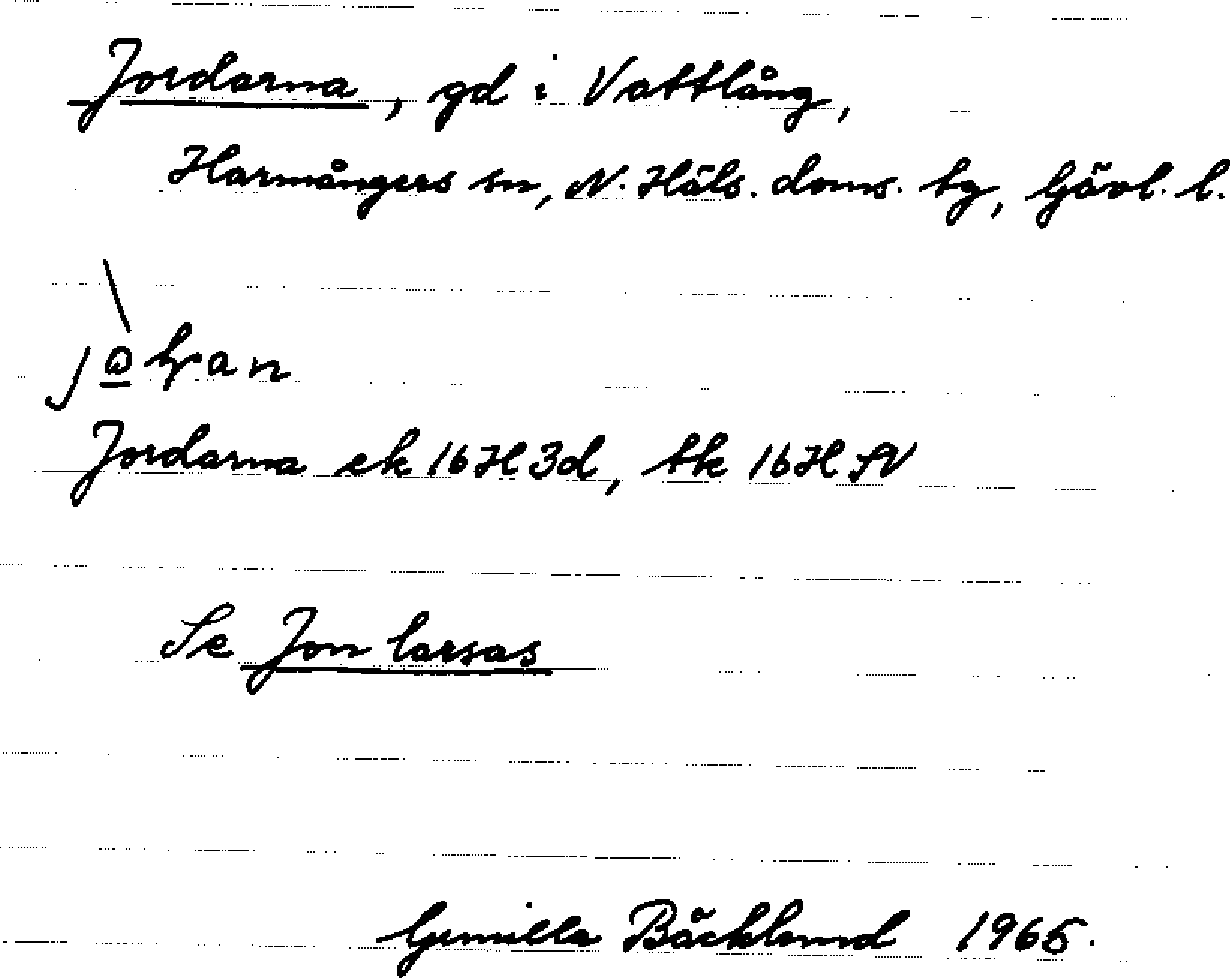 Jordarna, gd i Vattlång,
Harmångers sn, N. Häls. doms. tg, Gävl. l.
Jordarna ek 16H3d, tk 16H SV
Se Jon Larsas
Gunilla Bäcklund 1965.